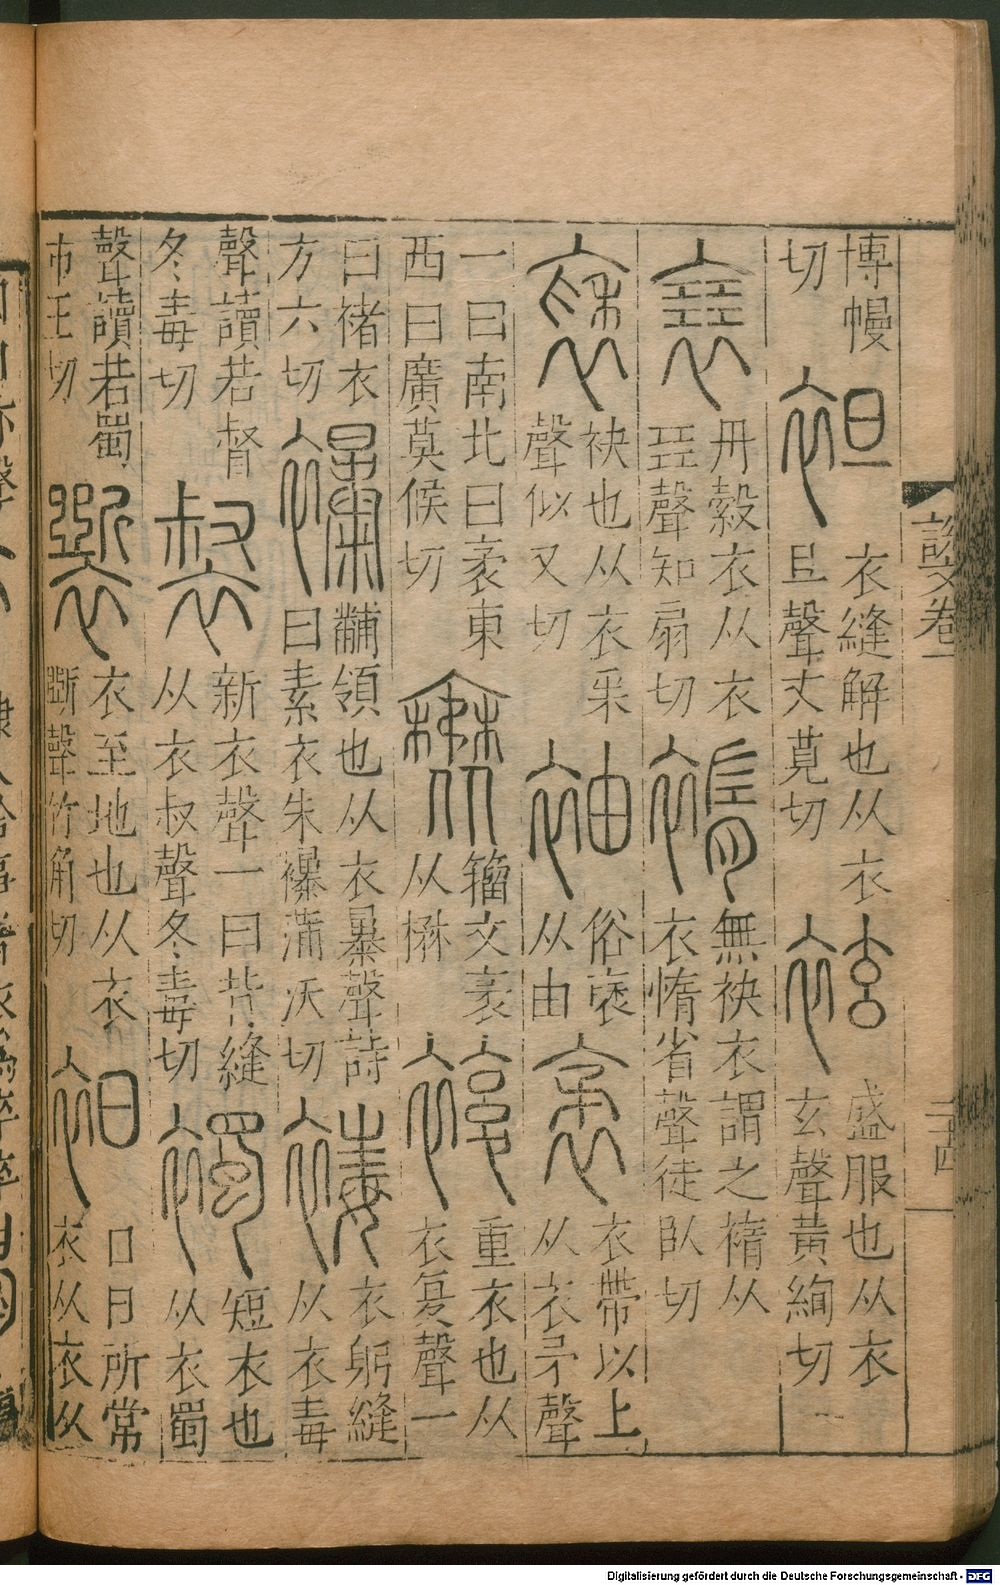 說文卷一
二十四
博幔
切
袒
衣縫解也从衣
旦聲丈莧切
袨
盛服也从衣
玄聲黃絢切
丹縠衣从衣
㠭聲知扇切
䙐
無袂衣謂之䙐从
衣惰省聲徒臥切
褎
袂也从衣采
聲似又切
袖
俗褎
从由
袤
衣帶以上
从衣矛聲
一曰南北曰袤東
西曰廣莫候切
籀文袤
从楙
複
重衣也从
衣复聲一
曰褚衣
方六切
襮
黼領也从衣暴聲詩
曰素衣朱襮蒲沃切
衣躬縫
从衣毒
聲讀若督
冬毒切
裻
新衣聲一曰背縫
从衣叔聲冬毒切
襡
短衣也
从衣蜀
聲讀若蜀
市玉切
衣至地也从衣
斲聲竹角切
衵
日日所常
衣从衣从
Digitalisierung gefördert durch die Deutsche Forschungsgemeinschaft - DFG